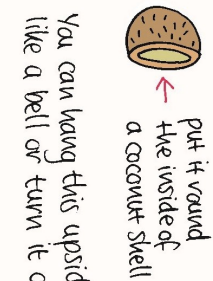 put it round
the inside of
a coconut shell
You can hang this upsid
like a bell or turn it o